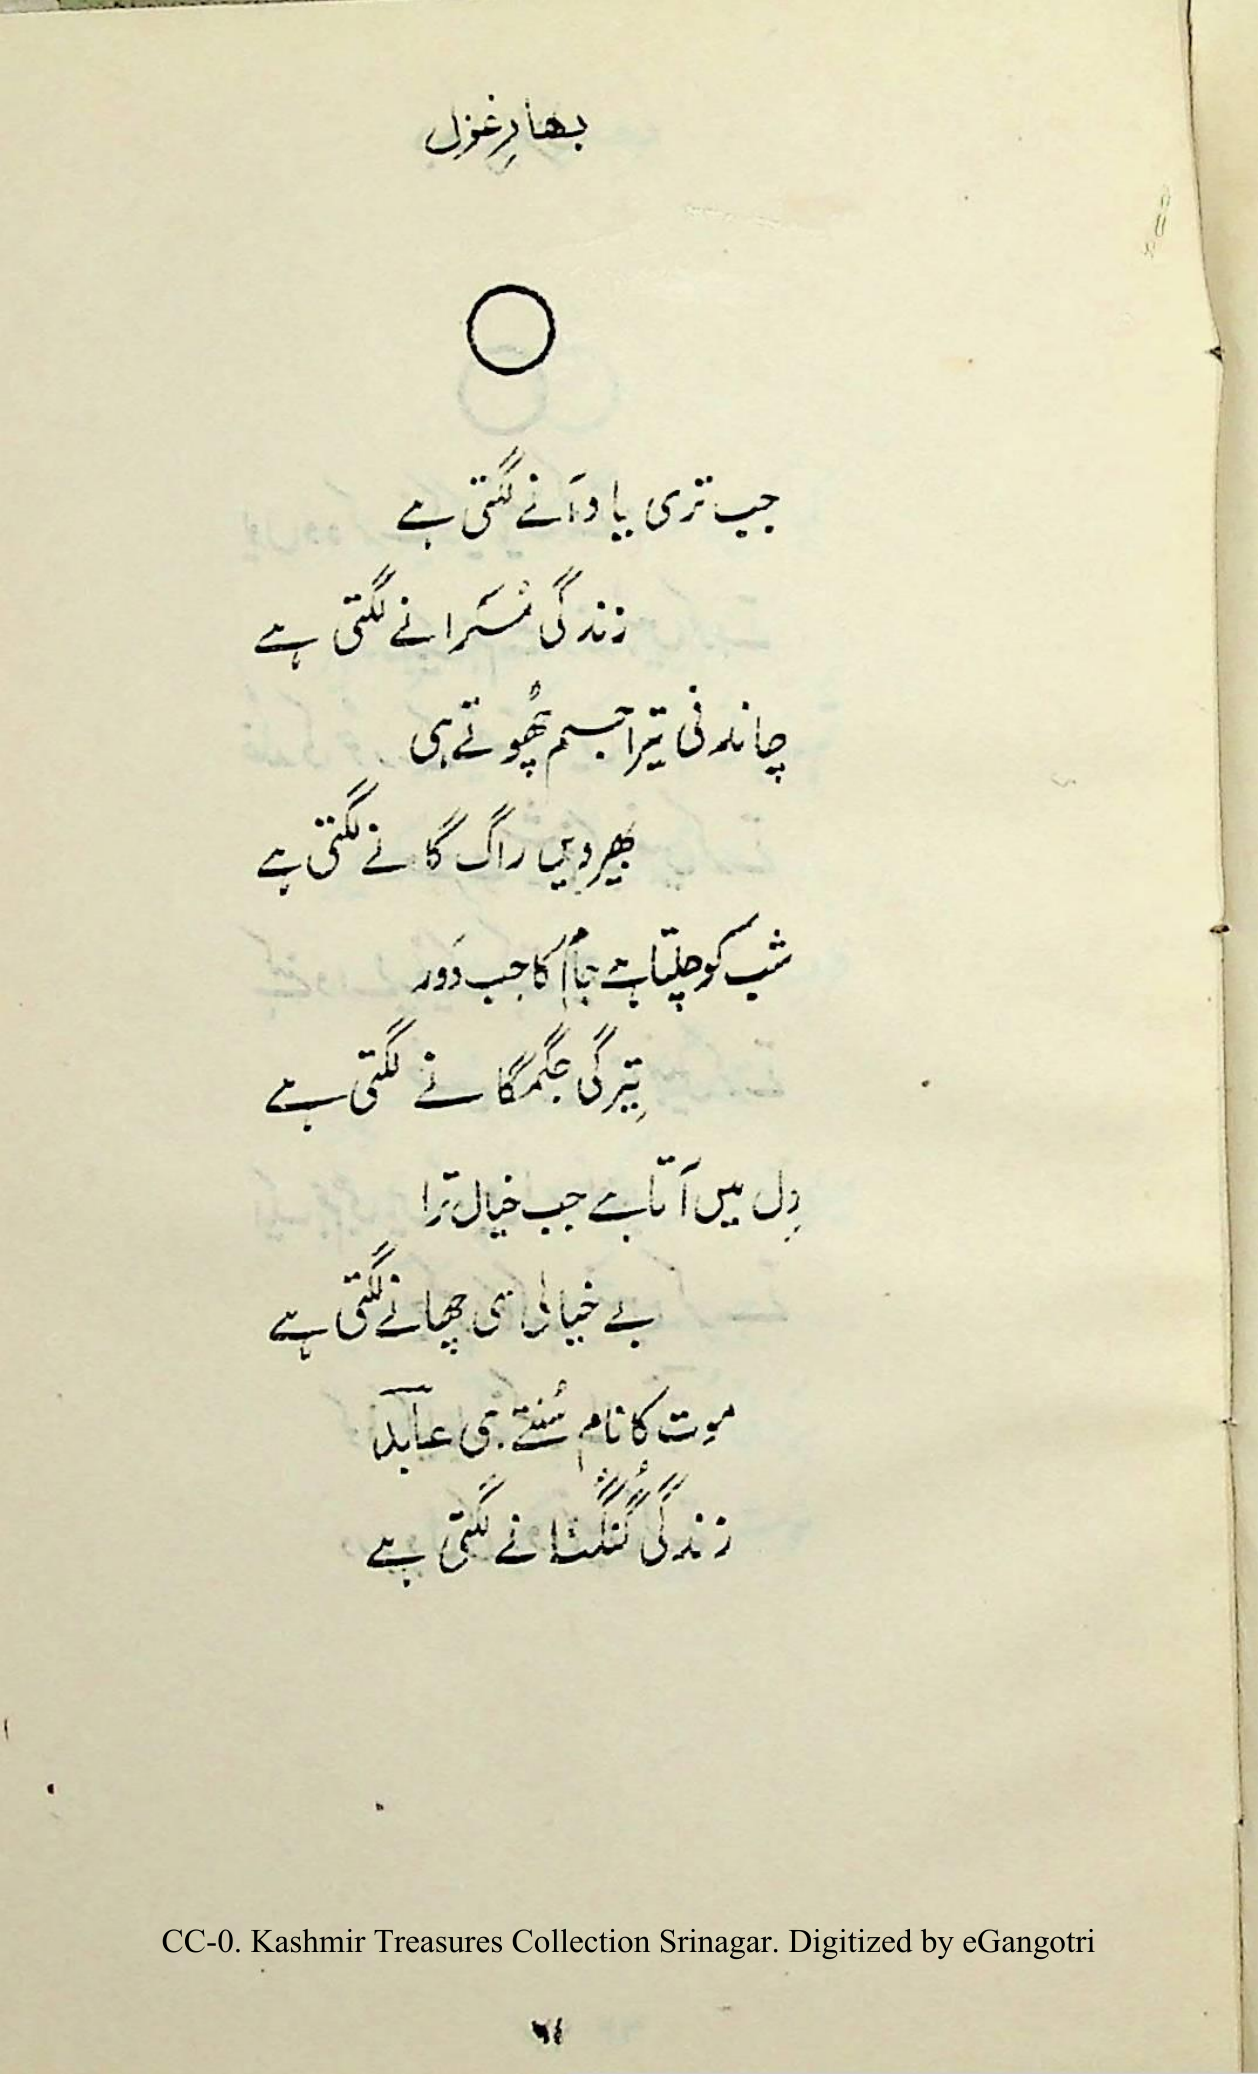 بهارِ غزل
جب تری یاد آنے لگتی ہے
زندگی مُسکرانے لگتی ہے
چاندنی تیرا جسم چھُوتے ہی
بھیرویں راگ گانے لگتی ہے
شب کو چلتا ہے جام کا جب دَور
تِیرگی جگمگانے لگتی ہے
دِل میں آتا ہے جب خیال ترا
بے خیالی سی چھانے لگتی ہے
موت کا نام سُنتے ہی عابدؔ
زندگی گُنگُنانے لگتی ہے
CC-0. Kashmir Treasures Collection Srinagar. Digitized by eGangotri